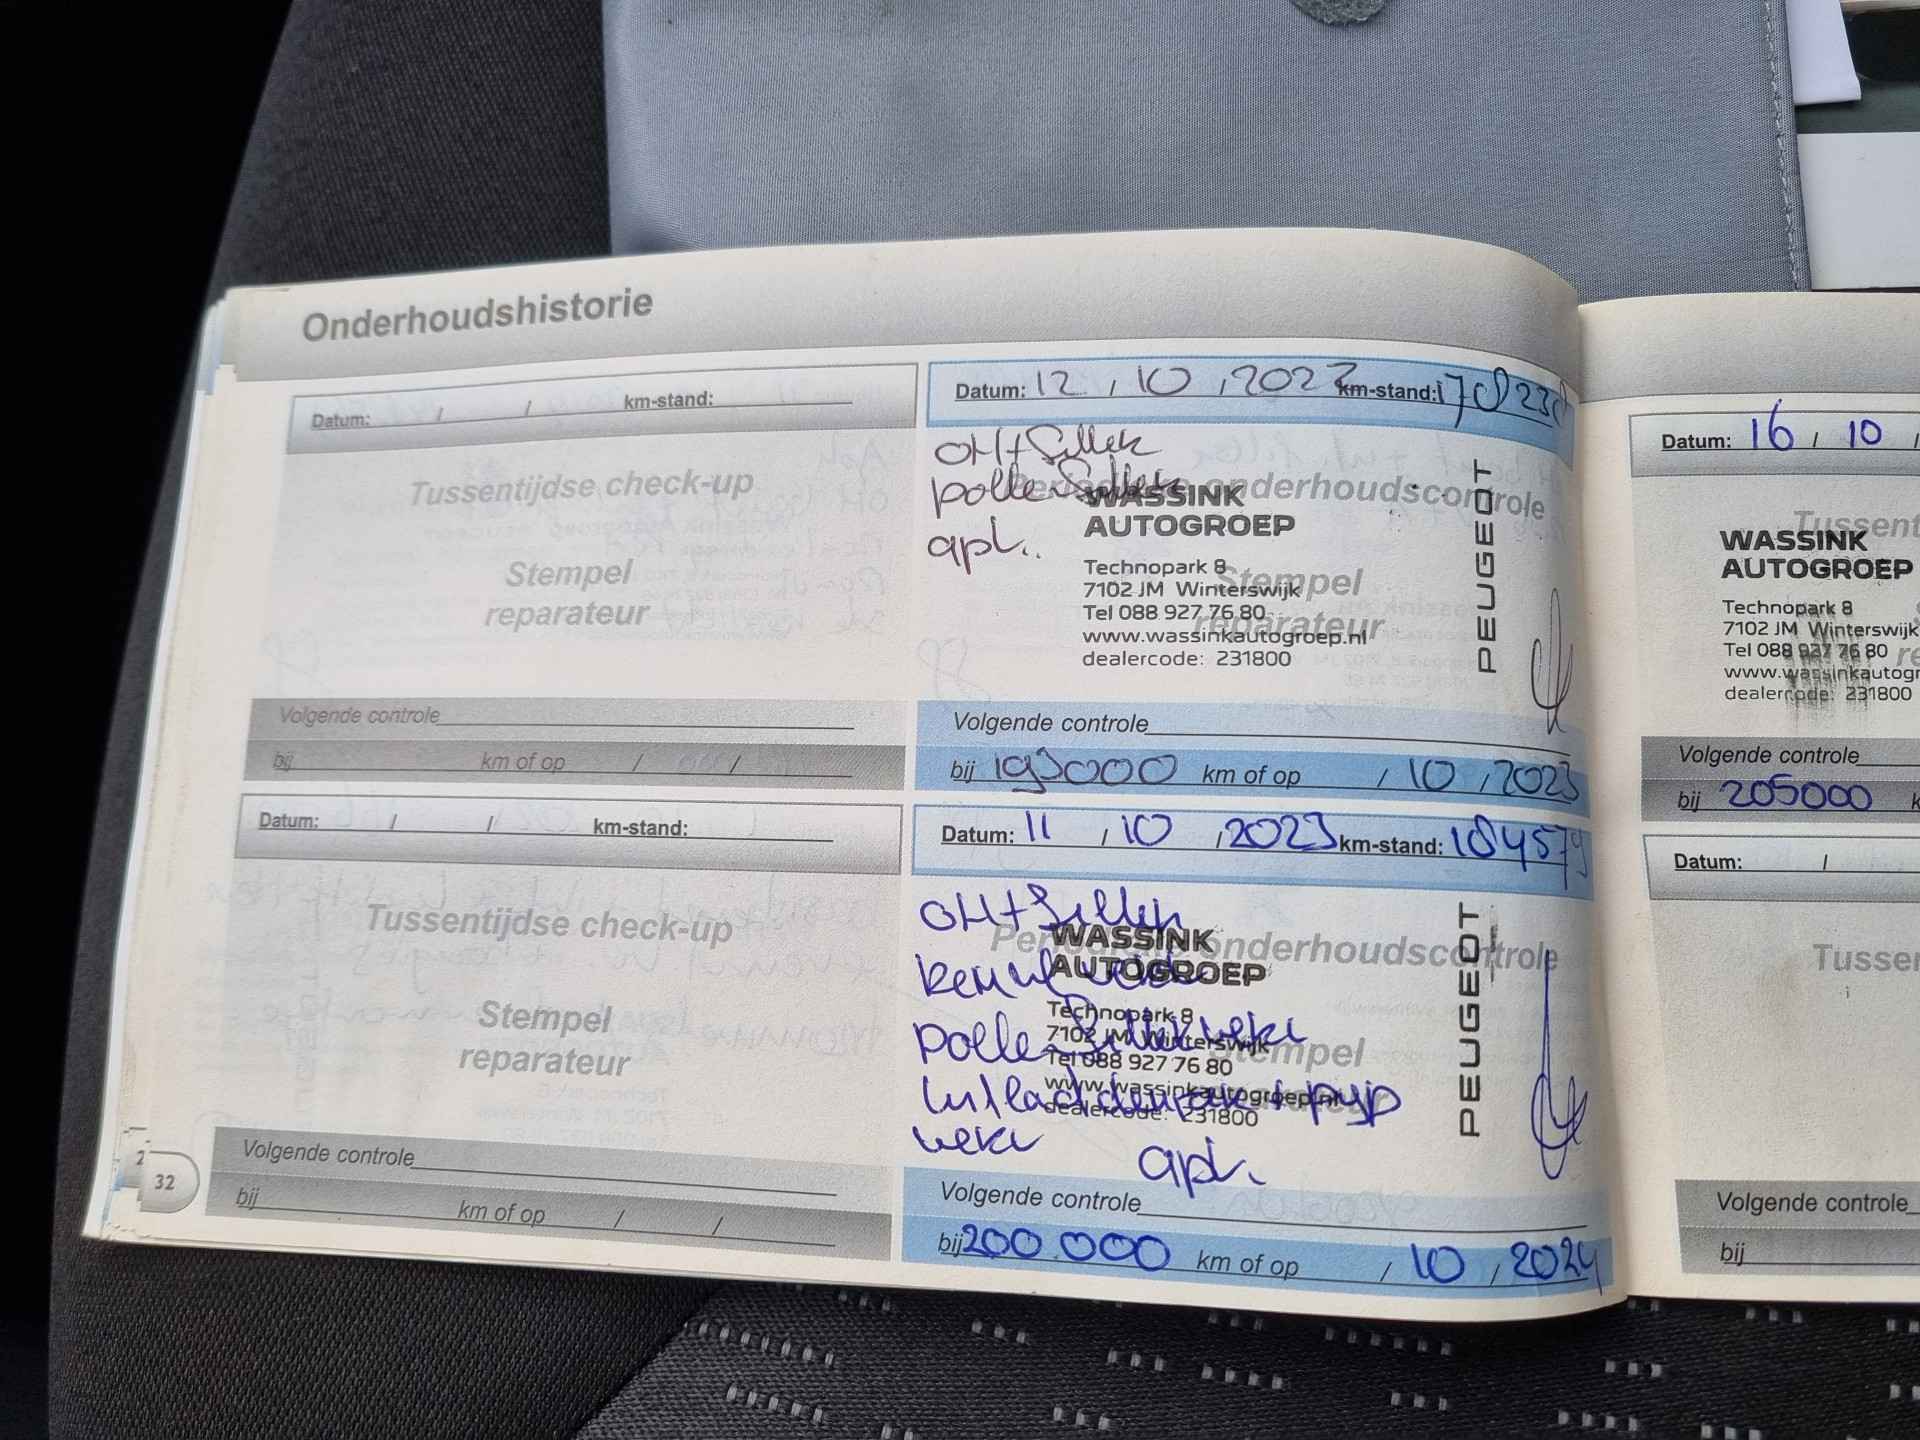 Onderhoudshistorie
Datum: / / km-stand:
Tussentijdse check-up
Stempel
reparateur
Volgende controle
bij km of op / /
Datum: / / km-stand:
Tussentijdse check-up
Stempel
reparateur
Volgende controle
bij km of op / /
32
Datum: 12 / 10 / 2022 km-stand: 170823
OH + Filter
pollenfilter
apk..
Periodieke onderhoudscontrole
WASSINK
AUTOGROEP
Technopark 8
7102 JM Winterswijk
Tel 088 927 76 80
www.wassinkautogroep.nl
dealercode: 231800
PEUGEOT
Stempel
reparateur
Volgende controle
bij 193000 km of op / 10 / 2023
Datum: 11 / 10 / 2023 km-stand: 184579
OH + Filter
Periodieke onderhoudscontrole
WASSINK
AUTOGROEP
Technopark 8
7102 JM Winterswijk
Tel 088 927 76 80
www.wassinkautogroep.nl
dealercode: 231800
PEUGEOT
Stempel
reparateur
apk.
Volgende controle
bij 200.000 km of op / 10 / 2024
Datum: 16 / 10 /
WASSINK
AUTOGROEP
Technopark 8
7102 JM Winterswijk
Tel 088 927 76 80
www.wassinkautogr
dealercode: 231800
Tussent
Volgende controle
bij 205000 k
Datum: /
Tusse
Volgende controle
bij